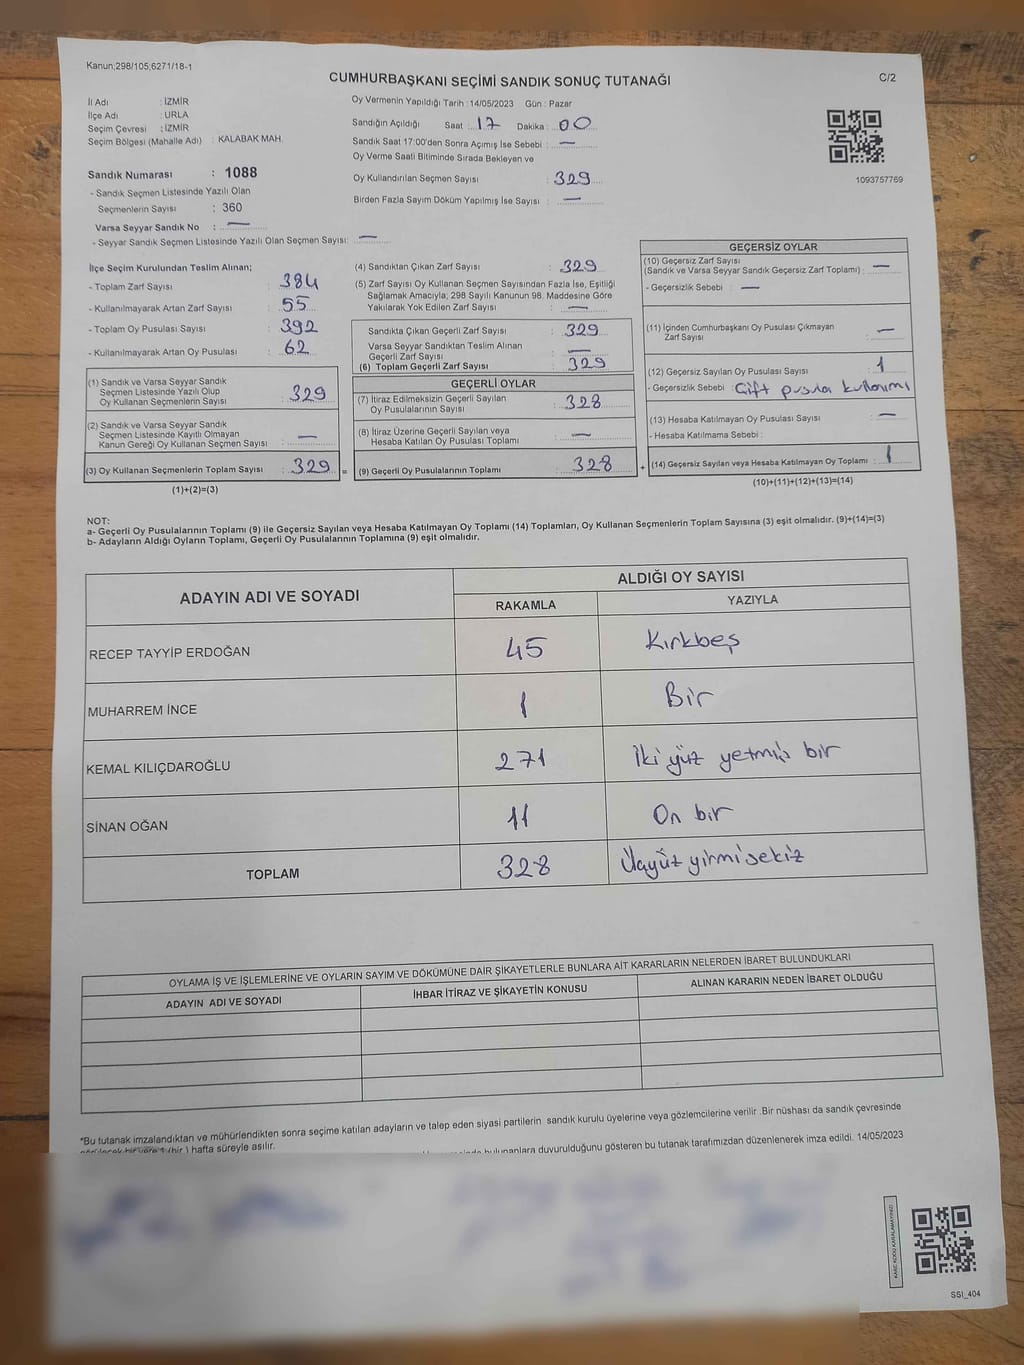 Kanun,298/105,6271/18-1
CUMHURBAŞKANI SEÇİMİ SANDIK SONUÇ TUTANAĞI
C/2
İl Adı : İZMİR
İlçe Adı : URLA
Seçim Çevresi : İZMİR
Seçim Bölgesi (Mahalle Adı) : KALABAK MAH.
Sandık Numarası : 1088
- Sandık Seçmen Listesinde Yazılı Olan
Seçmenlerin Sayısı : 360
Varsa Seyyar Sandık No : —
- Seyyar Sandık Seçmen Listesinde Yazılı Olan Seçmen Sayısı: —
Oy Vermenin Yapıldığı Tarih :14/05/2023 Gün : Pazar
Sandığın Açıldığı Saat : 17 Dakika : 00
Sandık Saat 17:00'den Sonra Açımış İse Sebebi : —
Oy Verme Saati Bitiminde Sırada Bekleyen ve
Oy Kullandırılan Seçmen Sayısı : 329
Birden Fazla Sayım Döküm Yapılmış İse Sayısı : —
1093757769
İlçe Seçim Kurulundan Teslim Alınan;
- Toplam Zarf Sayısı : 384
- Kullanılmayarak Artan Zarf Sayısı : 55
- Toplam Oy Pusulası Sayısı : 392
- Kullanılmayarak Artan Oy Pusulası : 62
(1) Sandık ve Varsa Seyyar Sandık
Seçmen Listesinde Yazılı Olup
Oy Kullanan Seçmenlerin Sayısı : 329
(2) Sandık ve Varsa Seyyar Sandık
Seçmen Listesinde Kayıtlı Olmayan
Kanun Gereği Oy Kullanan Seçmen Sayısı : —
(3) Oy Kullanan Seçmenlerin Toplam Sayısı : 329 =
(1)+(2)=(3)
(4) Sandıktan Çıkan Zarf Sayısı : 329
(5) Zarf Sayısı Oy Kullanan Seçmen Sayısından Fazla İse, Eşitliği
Sağlamak Amacıyla; 298 Sayılı Kanunun 98. Maddesine Göre
Yakılarak Yok Edilen Zarf Sayısı : —
Sandıkta Çıkan Geçerli Zarf Sayısı : 329
Varsa Seyyar Sandıktan Teslim Alınan
Geçerli Zarf Sayısı : —
(6) Toplam Geçerli Zarf Sayısı : 329
GEÇERLİ OYLAR
(7) İtiraz Edilmeksizin Geçerli Sayılan
Oy Pusulalarının Sayısı : 328
(8) İtiraz Üzerine Geçerli Sayılan veya
Hesaba Katılan Oy Pusulası Toplamı : —
(9) Geçerli Oy Pusulalarının Toplamı : 328 +
GEÇERSİZ OYLAR
(10) Geçersiz Zarf Sayısı
(Sandık ve Varsa Seyyar Sandık Geçersiz Zarf Toplamı) : —
- Geçersizlik Sebebi : —
(11) İçinden Cumhurbaşkanı Oy Pusulası Çıkmayan
Zarf Sayısı : —
(12) Geçersiz Sayılan Oy Pusulası Sayısı : 1
- Geçersizlik Sebebi : Çift pusula kullanımı
(13) Hesaba Katılmayan Oy Pusulası Sayısı : —
- Hesaba Katılmama Sebebi :
(14) Geçersiz Sayılan veya Hesaba Katılmayan Oy Toplamı : 1
(10)+(11)+(12)+(13)=(14)
NOT:
a- Geçerli Oy Pusulalarının Toplamı (9) ile Geçersiz Sayılan veya Hesaba Katılmayan Oy Toplamı (14) Toplamları, Oy Kullanan Seçmenlerin Toplam Sayısına (3) eşit olmalıdır. (9)+(14)=(3)
b- Adayların Aldığı Oyların Toplamı, Geçerli Oy Pusulalarının Toplamına (9) eşit olmalıdır.
ADAYIN ADI VE SOYADI
ALDIĞI OY SAYISI
RAKAMLA YAZIYLA
RECEP TAYYİP ERDOĞAN 45 Kırkbeş
MUHARREM İNCE 1 Bir
KEMAL KILIÇDAROĞLU 271 İki yüz yetmiş bir
SİNAN OĞAN 11 On bir
TOPLAM 328 Üçyüz yirmi sekiz
OYLAMA İŞ VE İŞLEMLERİNE VE OYLARIN SAYIM VE DÖKÜMÜNE DAİR ŞİKAYETLERLE BUNLARA AİT KARARLARIN NELERDEN İBARET BULUNDUKLARI
ADAYIN ADI VE SOYADI İHBAR İTİRAZ VE ŞİKAYETİN KONUSU ALINAN KARARIN NEDEN İBARET OLDUĞU
*Bu tutanak imzalandıktan ve mühürlendikten sonra seçime katılan adayların ve talep eden siyasi partilerin sandık kurulu üyelerine veya gözlemcilerine verilir .Bir nüshası da sandık çevresinde
görülecek bir yere 1 (bir ) hafta süreyle asılır.
bulunanlara duyurulduğunu gösteren bu tutanak tarafımızdan düzenlenerek imza edildi. 14/05/2023
KARE KODU KARALAMAYINIZ!
SSI_404